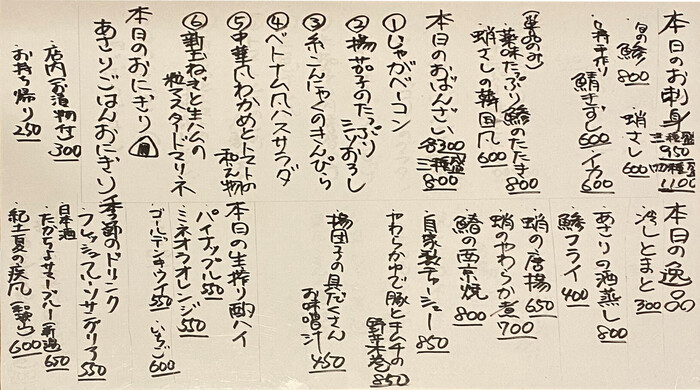 本日のお刺身 三種盛 950 四種盛 1100
旬の鯵 800 蛸さし 600
手作り 鯖きずし 600 イカ 600
薬味たっぷり鯵のたたき 800
蛸さしの韓国風 600
本日のおばんざい 各300 三種盛 800
①じゃがベーコン
②揚茄子のたっぷりおろし
③糸こんにゃくのきんぴら
④ベトナム風ハスサラダ
⑤中華風わかめとトマトの和え物
⑥新玉ねぎと生ハムの粒マスタードマリネ
本日のおにぎり
あさりごはんおにぎり
店内(お漬物付) 300
お持ち帰り 250
本日の逸品
冷しとまと 300
あさりの酒蒸し 800
鯵フライ 400
蛸の唐揚 650
蛸のやわらか煮 700
鰆の西京焼 800
自家製チャーシュー 850
やわらかゆで豚とキムチの野菜巻 850
揚団子の具だくさんお味噌汁 450
本日の生搾り酎ハイ
パイナップル 550
ミネオラオレンジ 550
ゴールデンキウイ 550 いちご 600
季節のドリンク
フレッシュフルーツサングリア 550
日本酒
たかちよサマーブルー(新潟) 650
紀土夏の疾風(和歌山) 600